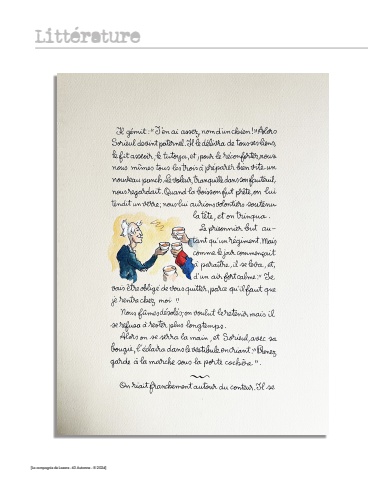 Littérature
Il gémit : "J'en ai assez, nom d'un chien !" Alors
Sorieul devint paternel. Il le délivra de tous ses liens,
le fit asseoir, le tutoya, et, pour le réconforter, nous
nous mîmes tous les trois à préparer bien vite un
nouveau punch. Le voleur, tranquille dans son fauteuil,
nous regardait. Quand la boisson fut prête, on lui
tendit un verre ; nous lui aurions volontiers soutenu
la tête, et on trinqua.
Le prisonnier but au-
tant qu'un régiment. Mais
comme le jour commençait
à paraître, il se leva, et,
d'un air fort calme : " Je
vais être obligé de vous quitter, parce qu'il faut que
je rentre chez moi."
Nous fûmes désolés ; on voulut le retenir, mais il
se refusa à rester plus longtemps.
Alors on se serra la main, et Sorieul, avec sa
bougie, l'éclaira dans le vestibule en criant : "Prenez
garde à la marche sous la porte cochère."
On riait franchement autour du conteur. Il se